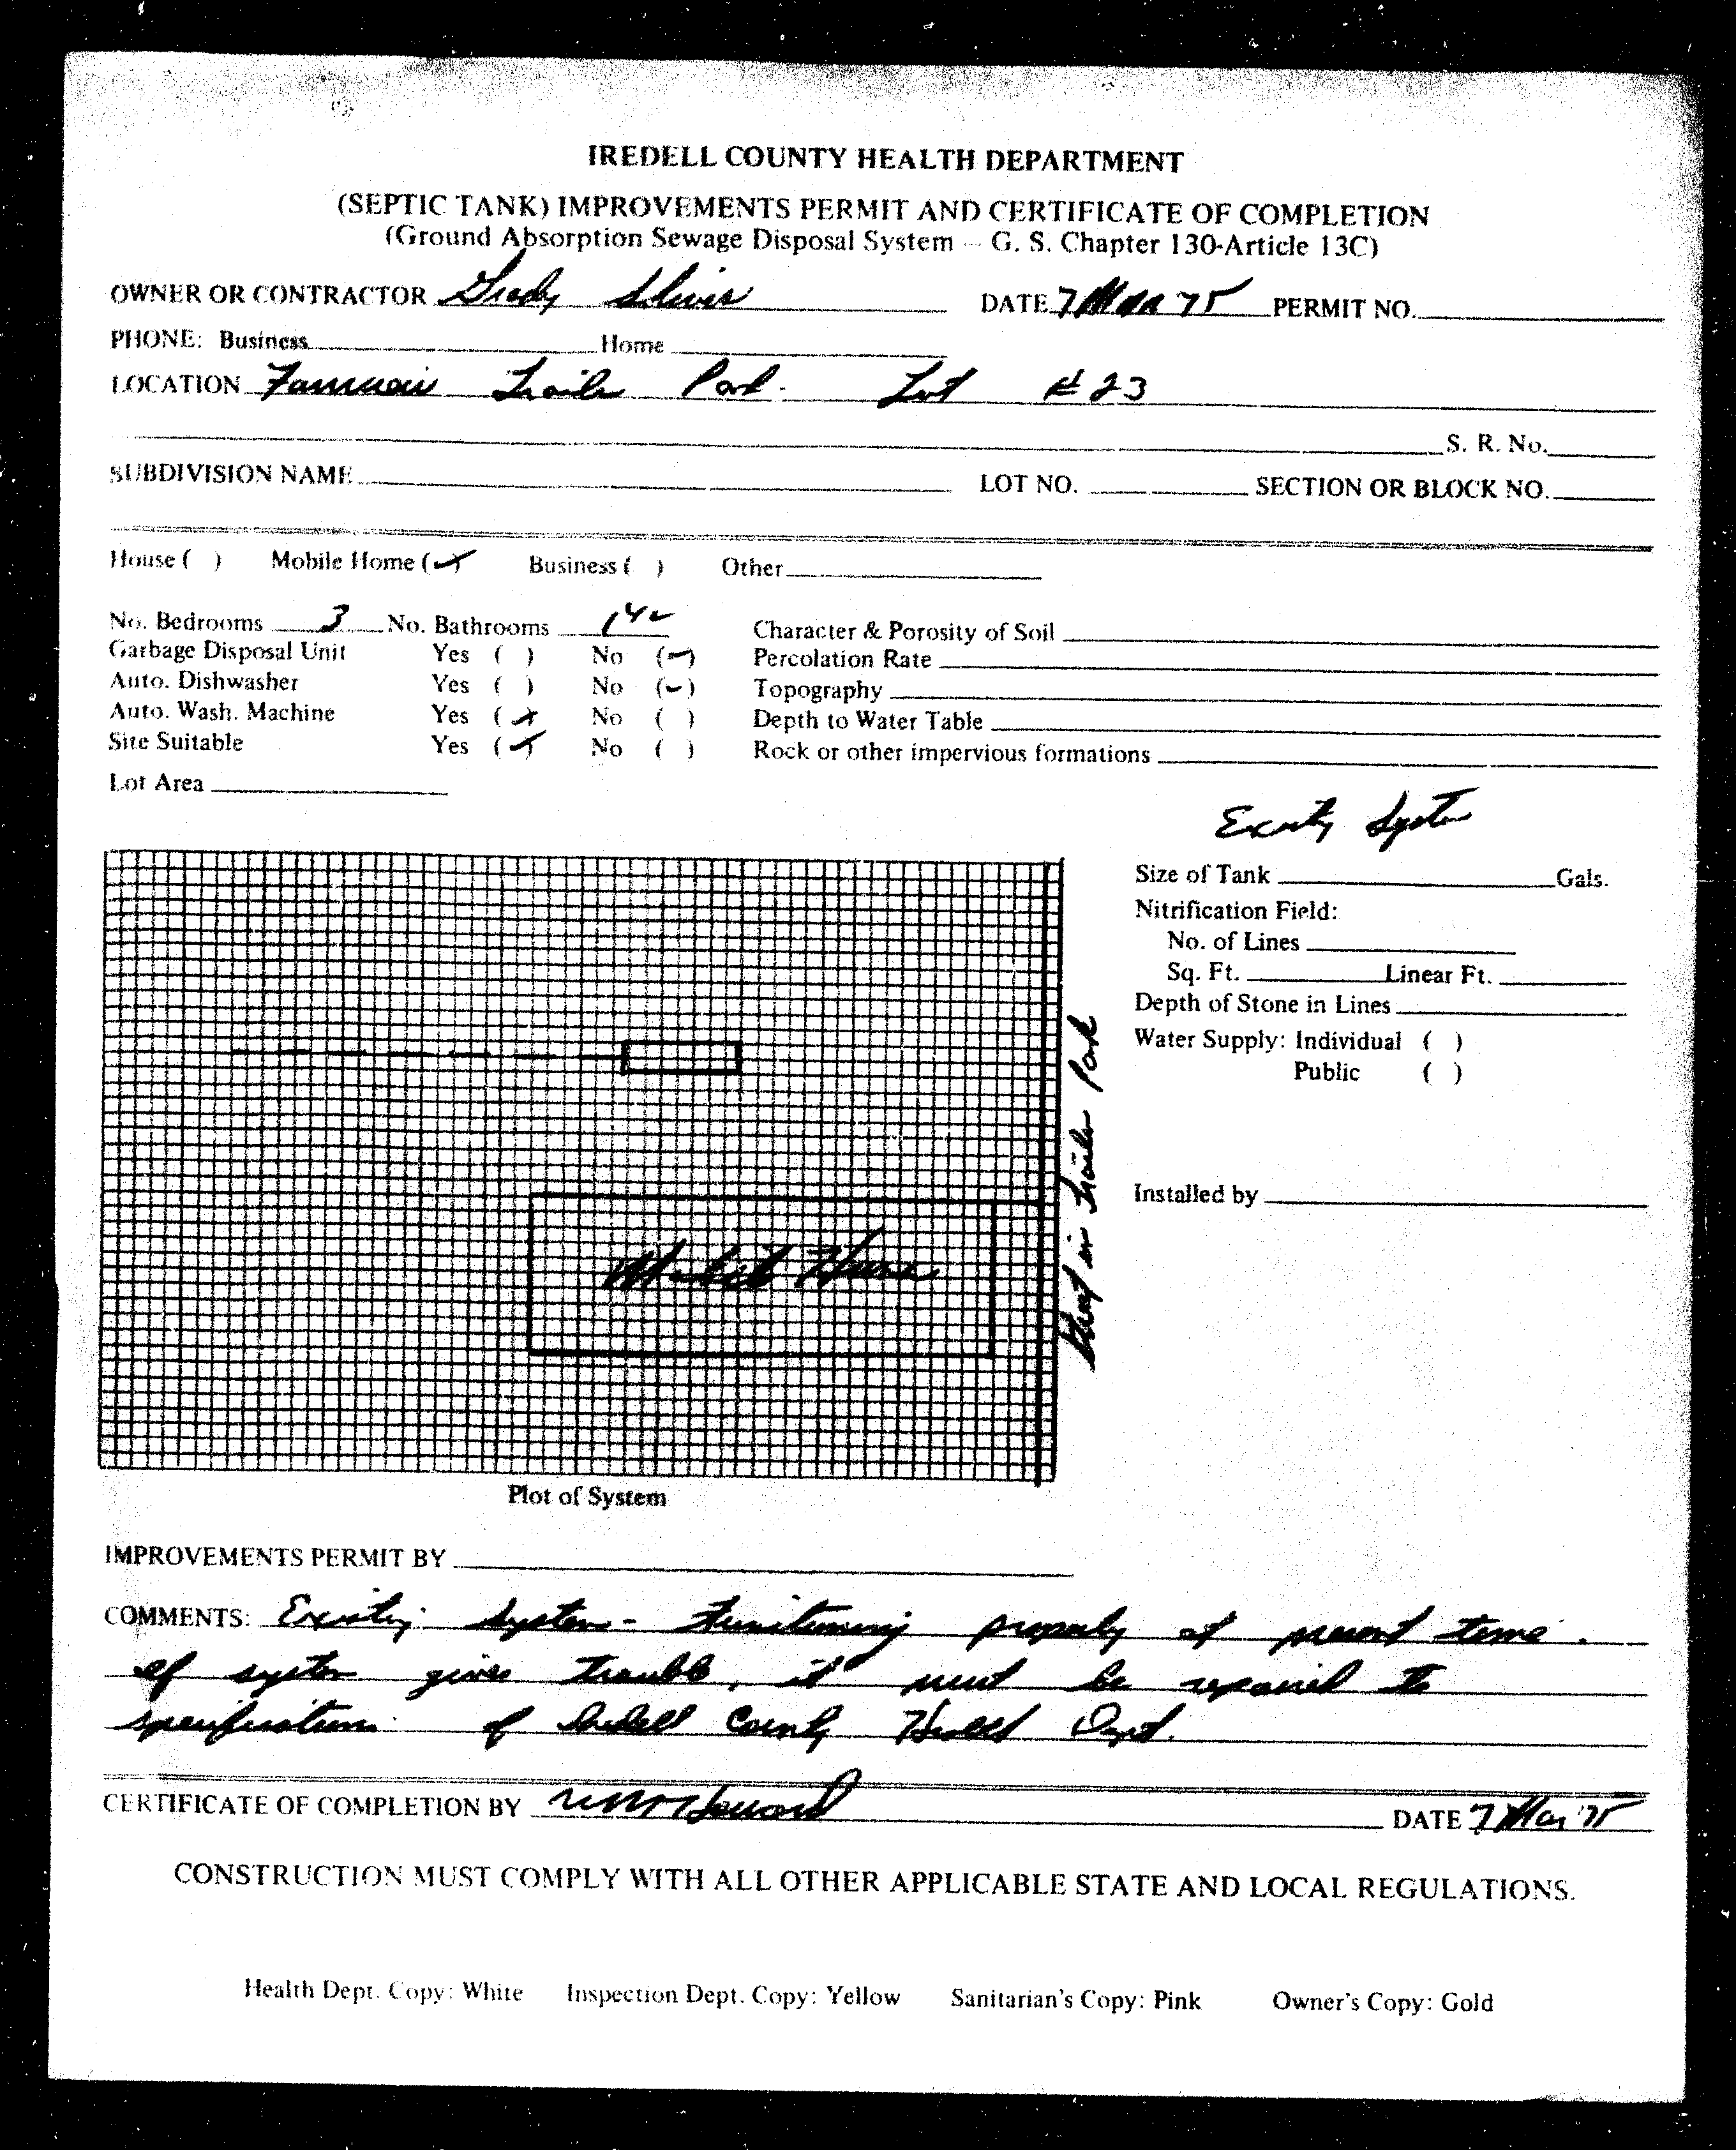 IREDELL COUNTY HEALTH DEPARTMENT
(SEPTIC TANK) IMPROVEMENTS PERMIT AND CERTIFICATE OF COMPLETION
(Ground Absorption Sewage Disposal System – G. S. Chapter 130-Article 13C)
OWNER OR CONTRACTOR Grady DATE 7 Mar 75 PERMIT NO.
PHONE: Business Home
LOCATION Trailer Park. Lot #23
S. R. No.
SUBDIVISION NAME LOT NO. SECTION OR BLOCK NO.
House ( ) Mobile Home (✓) Business ( ) Other
No. Bedrooms 3 No. Bathrooms
Character & Porosity of Soil
Garbage Disposal Unit Yes ( ) No (✓) Percolation Rate
Auto. Dishwasher Yes ( ) No (✓) Topography
Auto. Wash. Machine Yes (✓) No ( ) Depth to Water Table
Site Suitable Yes (✓) No ( ) Rock or other impervious formations
Lot Area
Existing System
Size of Tank Gals.
Nitrification Field:
No. of Lines
Sq. Ft. Linear Ft.
Depth of Stone in Lines
Water Supply: Individual ( )
Public ( )
Installed by
Mobile Home
Street in Trailer Park
Plot of System
IMPROVEMENTS PERMIT BY
COMMENTS: Existing System - Functioning properly at present time.
If system gives trouble, it must be repaired to
specifications of Iredell County Health Dept.
CERTIFICATE OF COMPLETION BY DATE 7 Mar 75
CONSTRUCTION MUST COMPLY WITH ALL OTHER APPLICABLE STATE AND LOCAL REGULATIONS.
Health Dept. Copy: White Inspection Dept. Copy: Yellow Sanitarian's Copy: Pink Owner's Copy: Gold